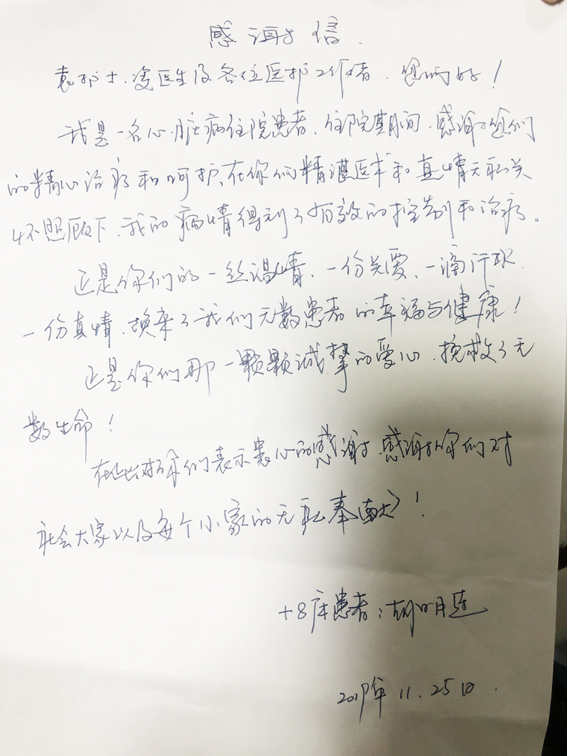 感谢信.
袁护士、凌医生及各位医护工作者,您们好!
我是一名心脏病住院患者、住院期间,感谢您们
的精心治疗和呵护,在你们精湛医术和真情无私关
怀照顾下,我的病情得到了有效的控制和治疗。
正是你们的一丝温情、一份关爱、一滴汗水、
一份真情,换来了我们无数患者的幸福与健康!
正是你们那一颗颗诚挚的爱心,挽救了无
数生命!
在此对你们表示衷心的感谢,感谢你们对
社会大家以及每个小家的无私奉献!
+8床患者:胡明
2019年11.25日.